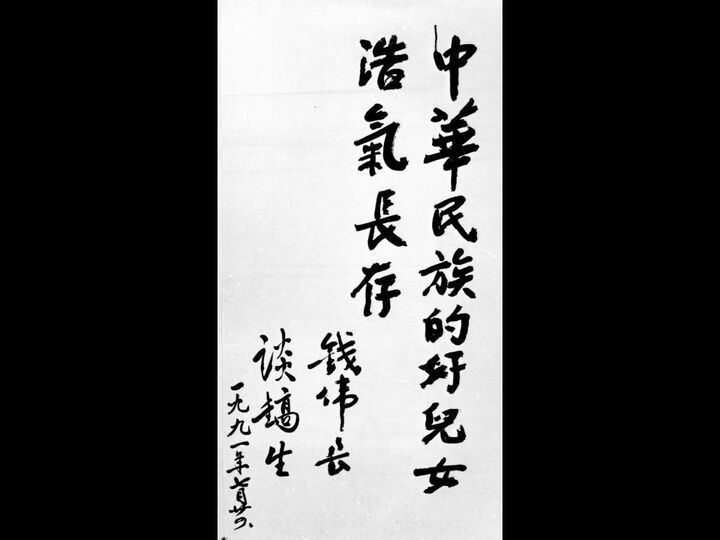 中華民族的好兒女
浩氣長存
钱伟长
谈镐生
一九九一年七月廿六